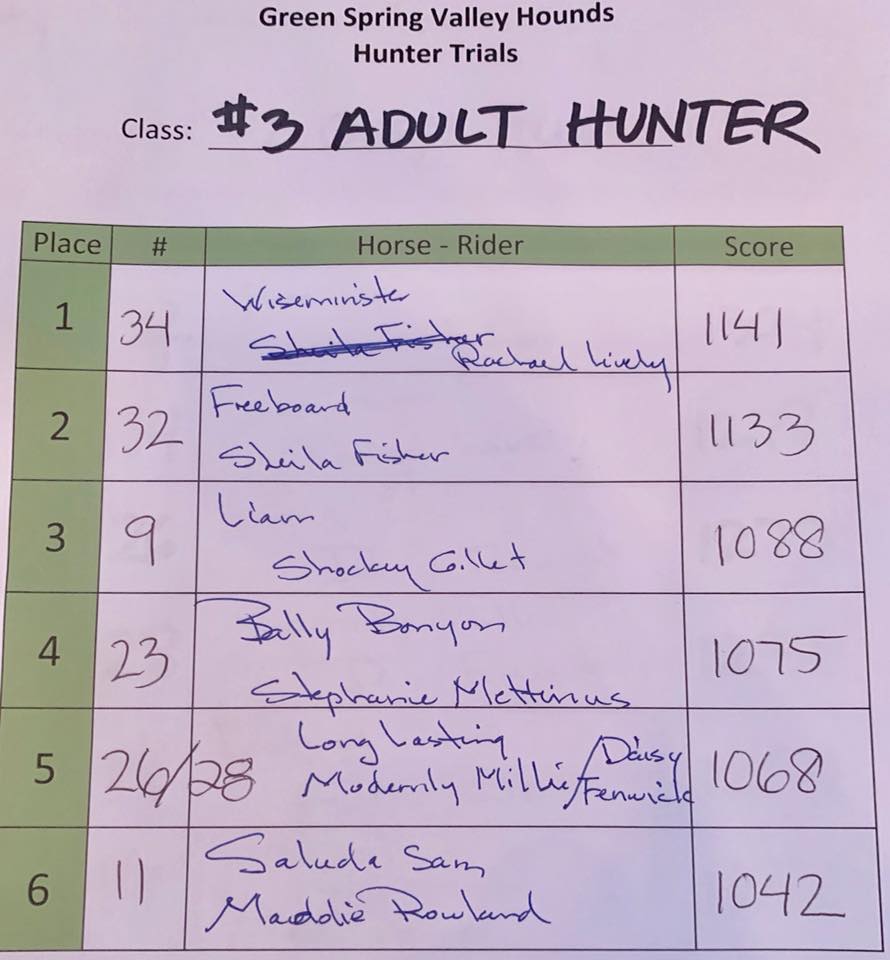 Green Spring Valley Hounds
Hunter Trials
Class: #3 ADULT HUNTER
Place # Horse - Rider Score
1 34 Wiseminister 1141
Sheila Fisher Rachael Lively
2 32 Freeboard 1133
Sheila Fisher
3 9 Liam 1088
Shockey Gillet
4 23 Bally Bonyon 1075
Stephanie Mettinus
5 26/28 Long Lasting 1068
Modernly Millie/Daisy Fenwick
6 11 Saluda Sam 1042
Maddie Rowland